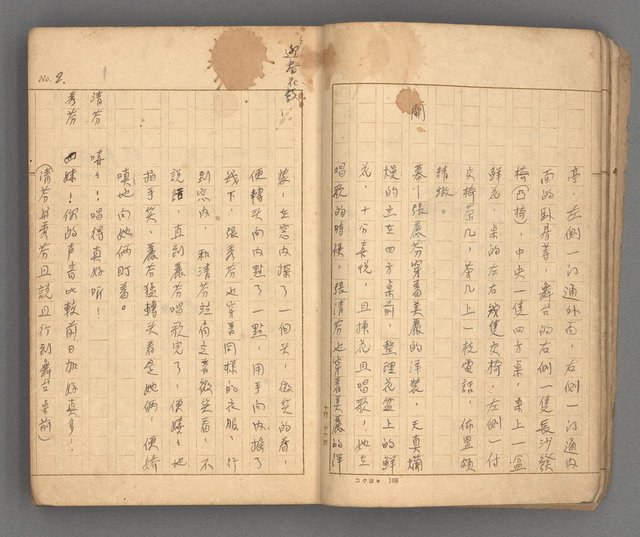 亭，左側一门通外面，右側一门通內
面的臥房等，舞台的右側一隻長沙發
椅（凸椅），中央一隻四方桌，桌上一盆
鮮花，桌的左右幾隻交椅，左側一付
交椅茶几，茶几上一枕電話，佈置頗
精緻。
開
幕—張麗芬穿着美麗的洋裝，天真爛
熳的立在四方桌前，整理花盆上的鮮
花，十分喜悅，且揷花且唱歌，她在
唱歌的時候，張清芬也穿着美麗的洋
コクヨ 168
迎春花
No. 2.
裝，在窓內探了一個头，微笑的看，
便轉头向內點了一點，用手向內搖了
幾下，張秀芬也穿着同樣的衣服，行
到窓內，和清芬站肩立着微笑着，不
說話，直到麗芬唱歌完了，便嘻々地
拍手笑，麗芬猛轉头看是她俩，便嬌
嗔地向她俩盯着。
清芬
嘻々！唱得真好听！
秀芬
四妹！你的声音比較前日加好真多！
（清芬與秀芬且說且行到舞台桌前）